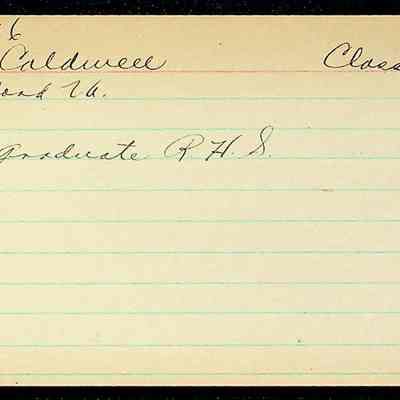 6
Caldwell Class
ond Va.
graduate R. H. S.